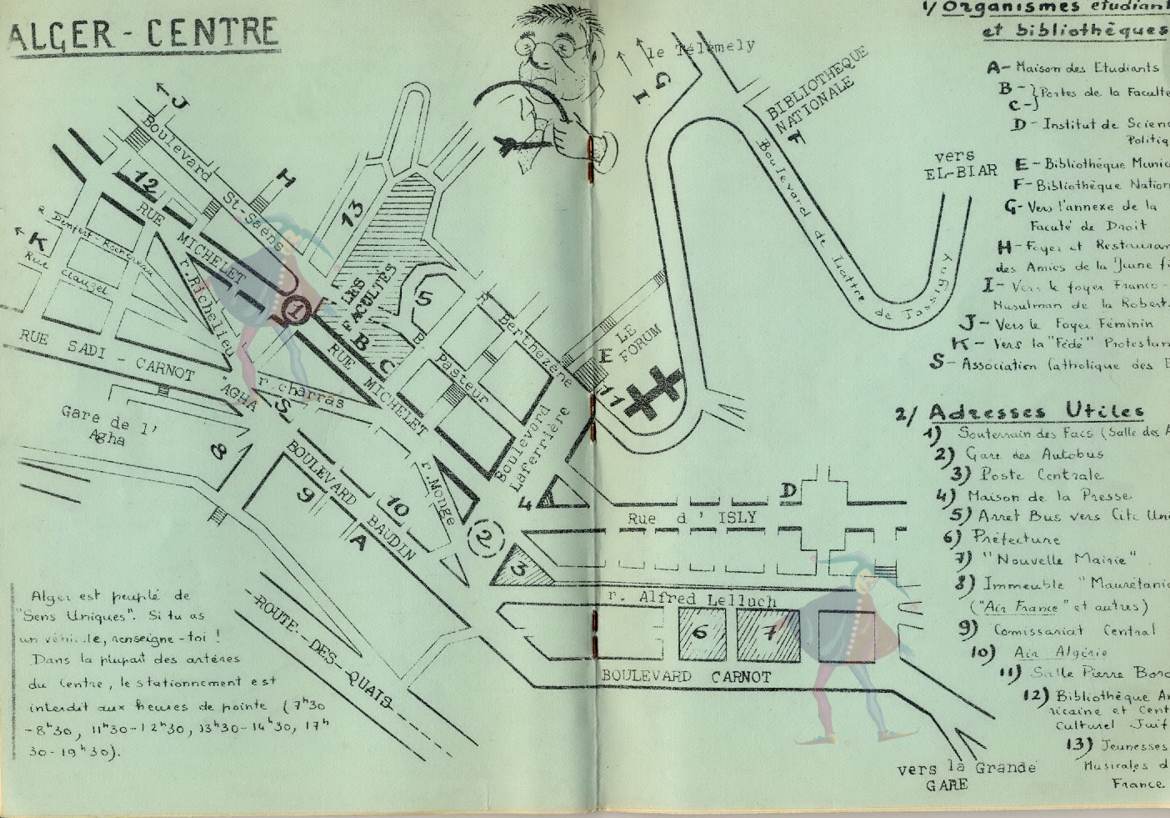 ALGER - CENTRE
le Télémely
G
I
BIBLIOTHEQUE
NATIONALE
F
vers
EL-BIAR
Boulevard de Lattre
de Tassigny
J
Boulevard
St-Saens
H
12
RUE
MICHELET
13
K
Rue
Clauzel
r. Richelieu
1
LES
FACULTÉS
5
B
C
B
RUE
MICHELET
Pasteur
Berthezène
LE
FORUM
E
11
RUE SADI - CARNOT
AGHA
r. charras
S
Gare de l'
Agha
8
9
BOULEVARD
BAUDIN
10
A
r. Monge
Boulevard
Laferrière
4
2
3
D
Rue d' ISLY
r. Alfred Lelluch
6
7
BOULEVARD CARNOT
ROUTE-DES-QUAIS
vers la Grande
GARE
Alger est peuplé de
"Sens Uniques". Si tu as
un véhicule, renseigne-toi !
Dans la plupart des artères
du Centre, le stationnement est
interdit aux heures de pointe (7h30
-8h30, 11h30-12h30, 13h30-14h30, 17h
30-19h30).
1/ Organismes étudiant
et bibliothèques
A- Maison des Etudiants
B -
C - } Portes de la Faculté
D - Institut de Scien
Politiq
E - Bibliothèque Munic
F - Bibliothèque Nation
G- Vers l'annexe de la
Faculté de Droit
H - Foyer et Restauran
des Amies de la Jeune fi
I - Vers le foyer Franco-
Musulman de la Robert
J - Vers le Foyer Féminin
K - Vers la "Fédé" Protestan
S - Association Catholique des E
2/ Adresses Utiles
1) Souterrain des Facs (Salle des A
2) Gare des Autobus
3) Poste Centrale
4) Maison de la Presse
5) Arret Bus vers Cité Uni
6) Préfecture
7) "Nouvelle Mairie"
8) Immeuble "Maurétania
("Air France" et autres)
9) Comissariat Central
10) Air Algérie
11) Salle Pierre Bord
12) Bibliothèque Am
ricaine et Cent
Culturel Juif
13) Jeunesses
Musicales d
France